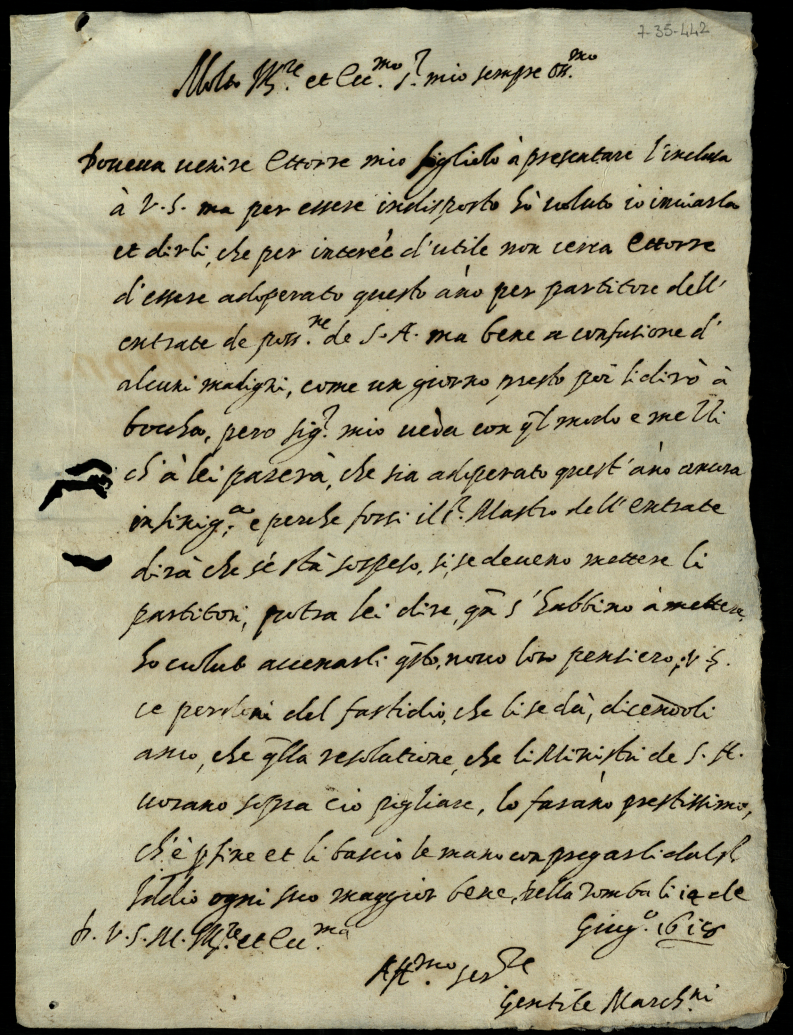 7-35-442
Molto Ill.re et Ecc.mo S.r mio sempre oss.mo
Doueua uenire Ettorre mio figliolo à presentare l'inclusa
à V.S. ma per essere indisposto hò uoluto io inuiarla
et dirli, che per interée d'utile non cerca Ettorre
d'essere adoperato questo año per partitore dell'
entrate de poss.ne de S.A. ma bene a confusione d'
alcuni maligni, come un giorno presto poi li dirò à
boccha, pero sig.r mio ueda con q̃l modo e me
ch'à lei parerà, che sia adoperato quest'año ancora
e perche forsi il S.r Mastro dell'entrate
dirà che s'è stà sospeso, si se deueno mettere li
partitori, potra lei dire, qñ s'habbino à mettere,
ho uoluto accenarli q̃sto, nouo loro pensiero, V.S.
ce perdoni del fastidio, che li se dà, dicendoli
anco, che q̃lla resolutione, che li Ministri de S.A.
uorano sopra ciò pigliare, lo farano prestissimo,
ch'è p̱ fine et li bascio le mano con pregarli dal S.r
Iddio ogni suo maggior bene, della Romba li 12 de
Giug.o 1618
D. V.S.M. Ill.re et Ecc.ma
Aff.mo ser.re
Gentile March.ni